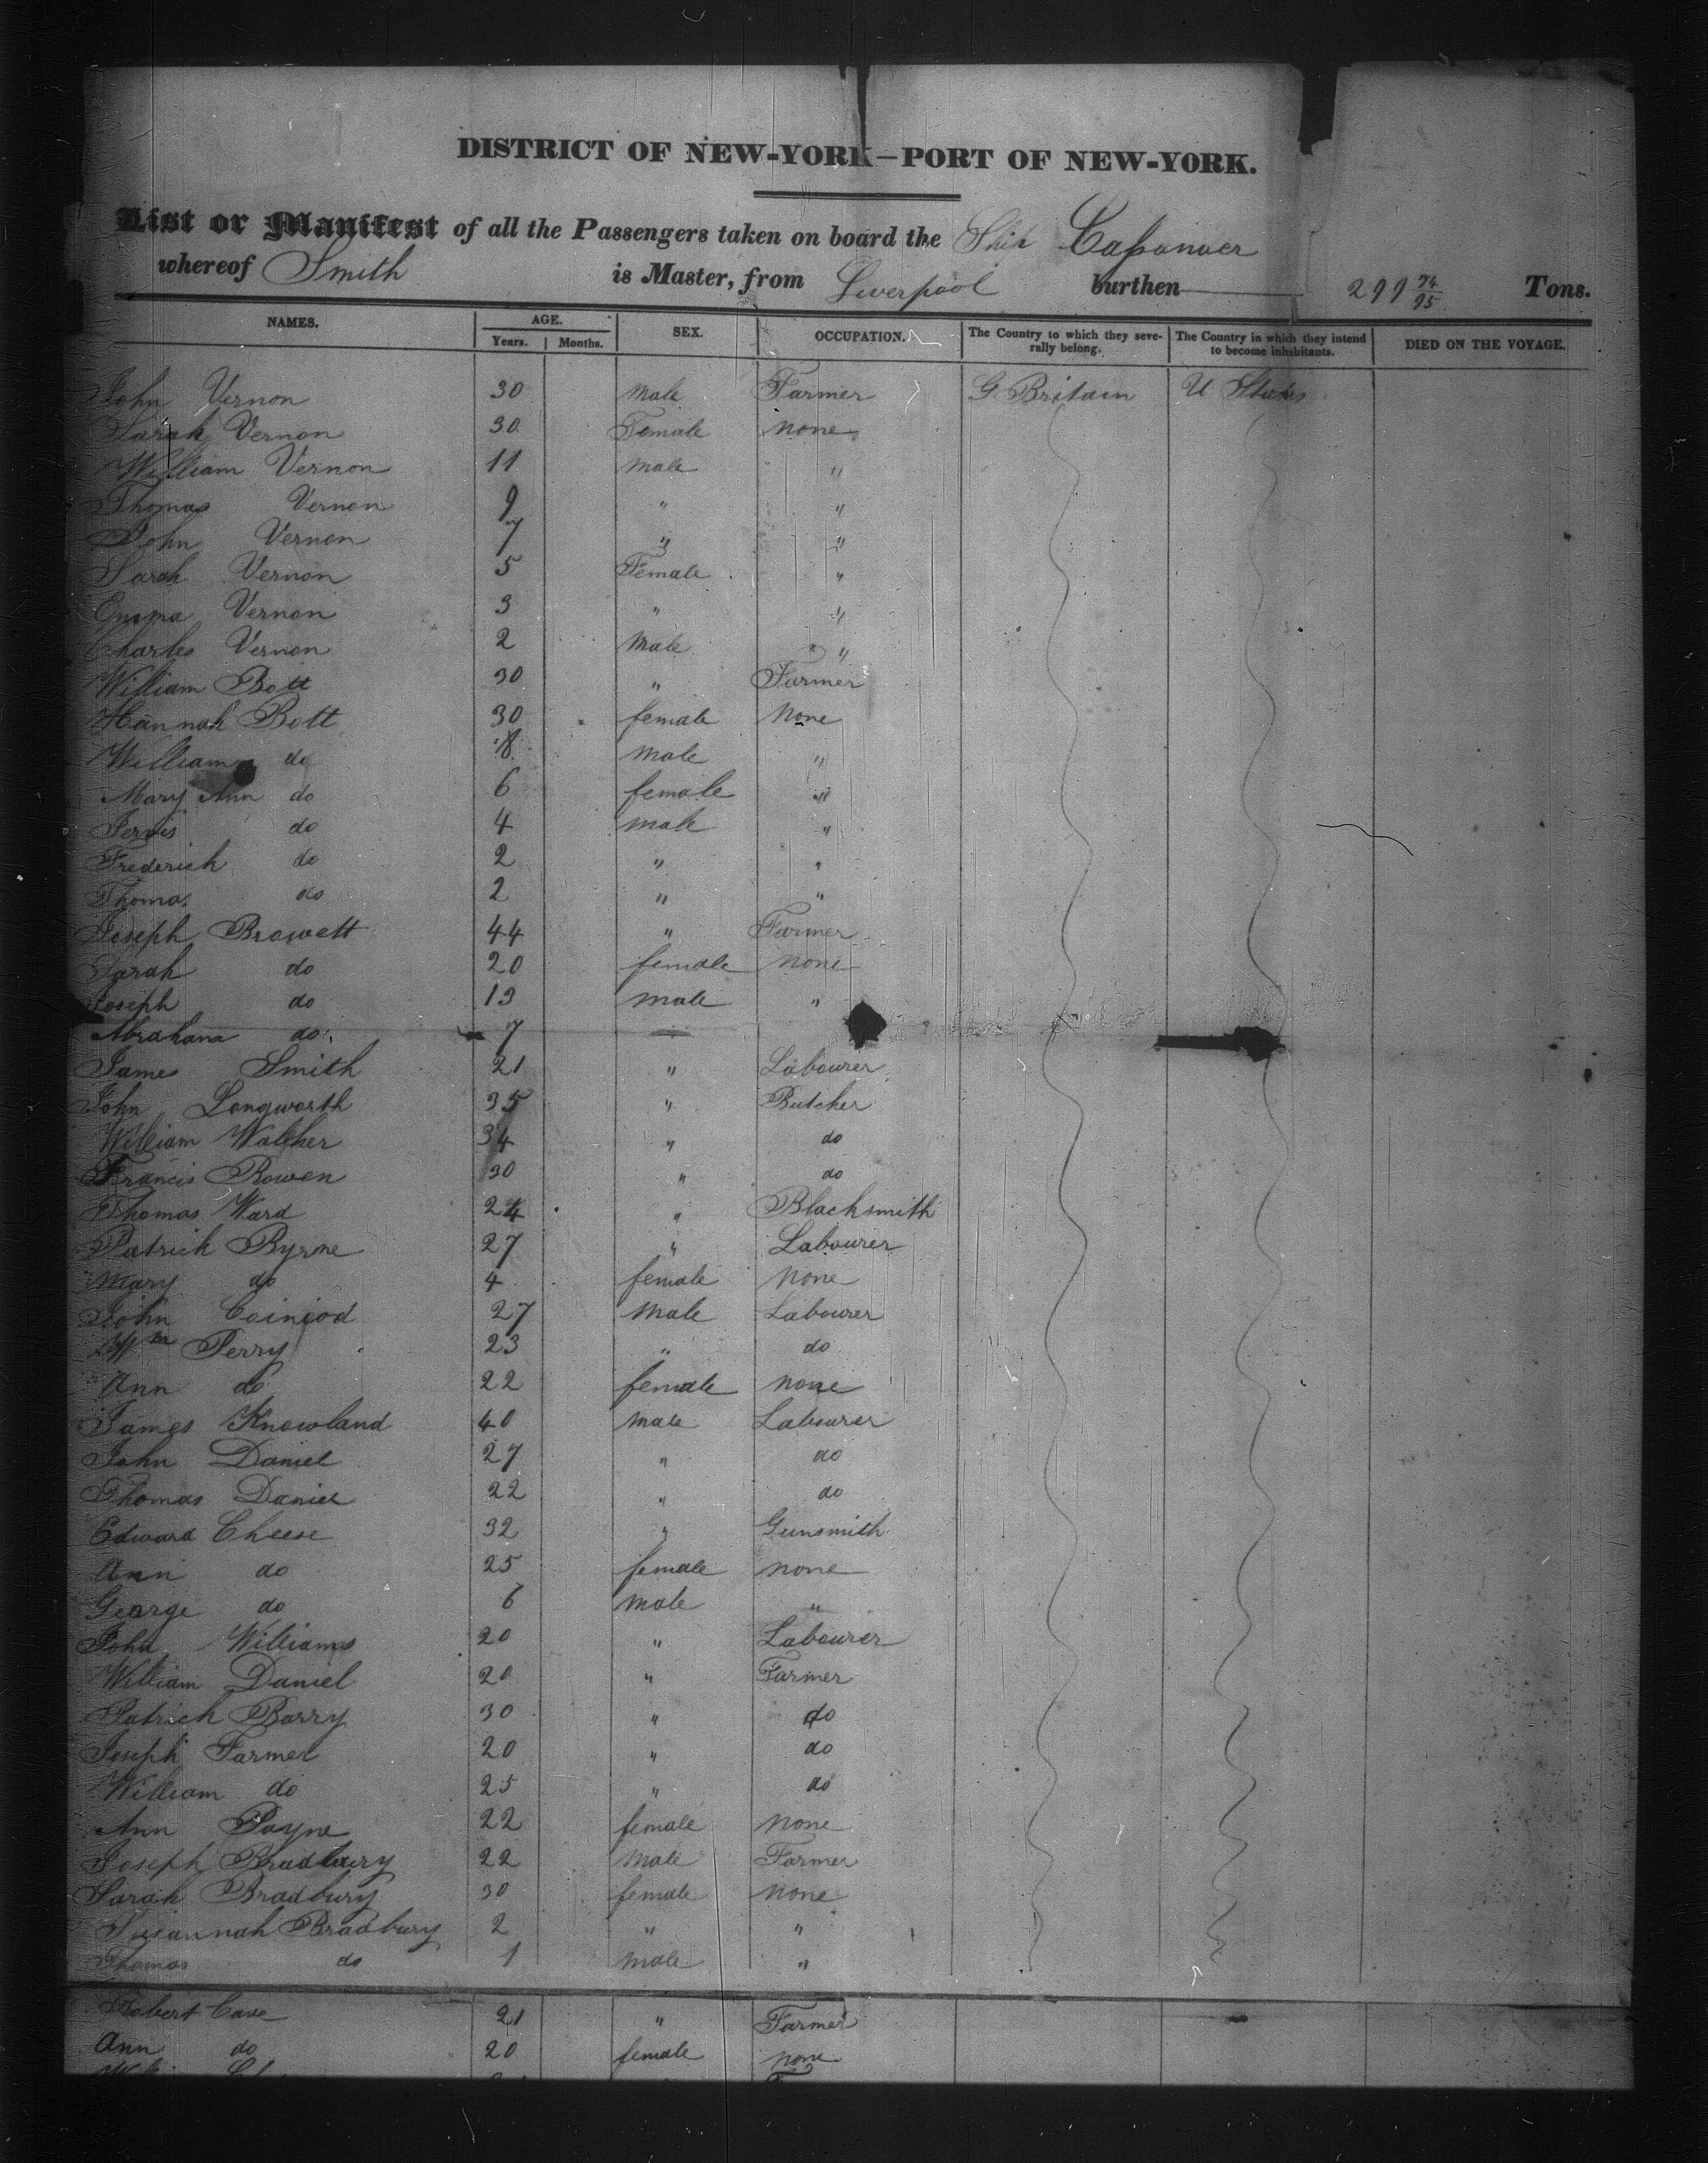 DISTRICT OF NEW-YORK—PORT OF NEW-YORK.
List or Manifest of all the Passengers taken on board the Ship
whereof Smith is Master, from Liverpool burthen 299 74/95 Tons.
NAMES. AGE. Years. Months. SEX. OCCUPATION. The Country to which they severally belong. The Country in which they intend to become inhabitants. DIED ON THE VOYAGE.
John Vernon 30 male Farmer G Britain U States
Sarah Vernon 30 Female none
William Vernon 11 male "
Thomas Vernon 9 " "
John Vernon 7 " "
Sarah Vernon 5 Female "
Emma Vernon 3 " "
Charles Vernon 2 Male "
William Bott 30 " Farmer
Hannah Bott 30 female None
William do 8 male "
Mary Ann do 6 female "
Jervis do 4 male "
Frederick do 2 " "
Thomas do 2 " "
Joseph Browett 44 " Farmer
Sarah do 20 female none
Joseph do 13 male "
Abraham do 7
James Smith 21 " Labourer
John Longworth 35 " Butcher
William Walker 34 " do
Francis Rowen 30 " do
Thomas Ward 24 " Blacksmith
Patrick Byrne 27 " Labourer
Mary do 4 female none
John 27 male Labourer
Wm Perry 23 " do
Ann do 22 female none
James Knowland 40 male Labourer
John Daniel 27 " do
Thomas Daniel 22 " do
Edward Cheese 32 " Gunsmith
Ann do 25 female none
George do 6 male "
John Williams 20 " Labourer
William Daniel 20 " Farmer
Patrick Barry 30 " do
Joseph Farmer 20 " do
William do 25 " do
Ann Payne 22 female none
Joseph Bradbury 22 male Farmer
Sarah Bradbury 30 female none
Susannah Bradbury 2 " "
Thomas do 1 male "
Robert Cave 21 " Farmer
Ann do 20 female none